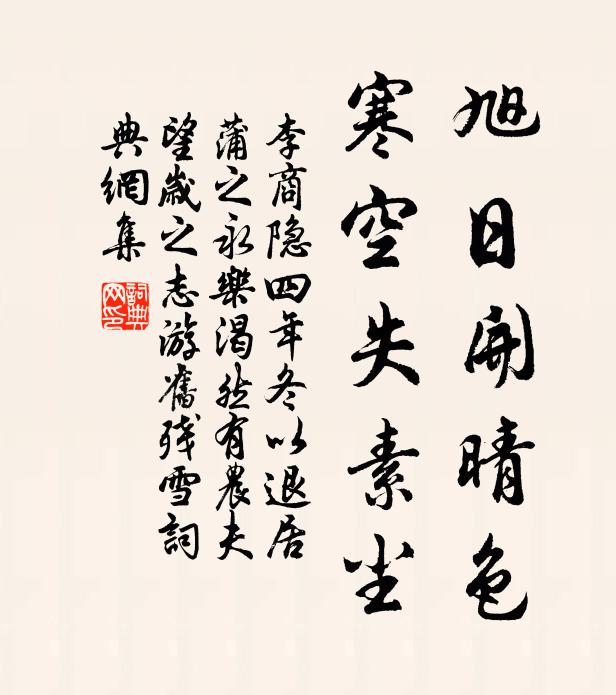 旭日開晴色
寒空失素尘
李商隐四年冬以退居
蒲之永樂渴然有農夫
望歲之志游舊残雪詞
典網集
詞典
网印